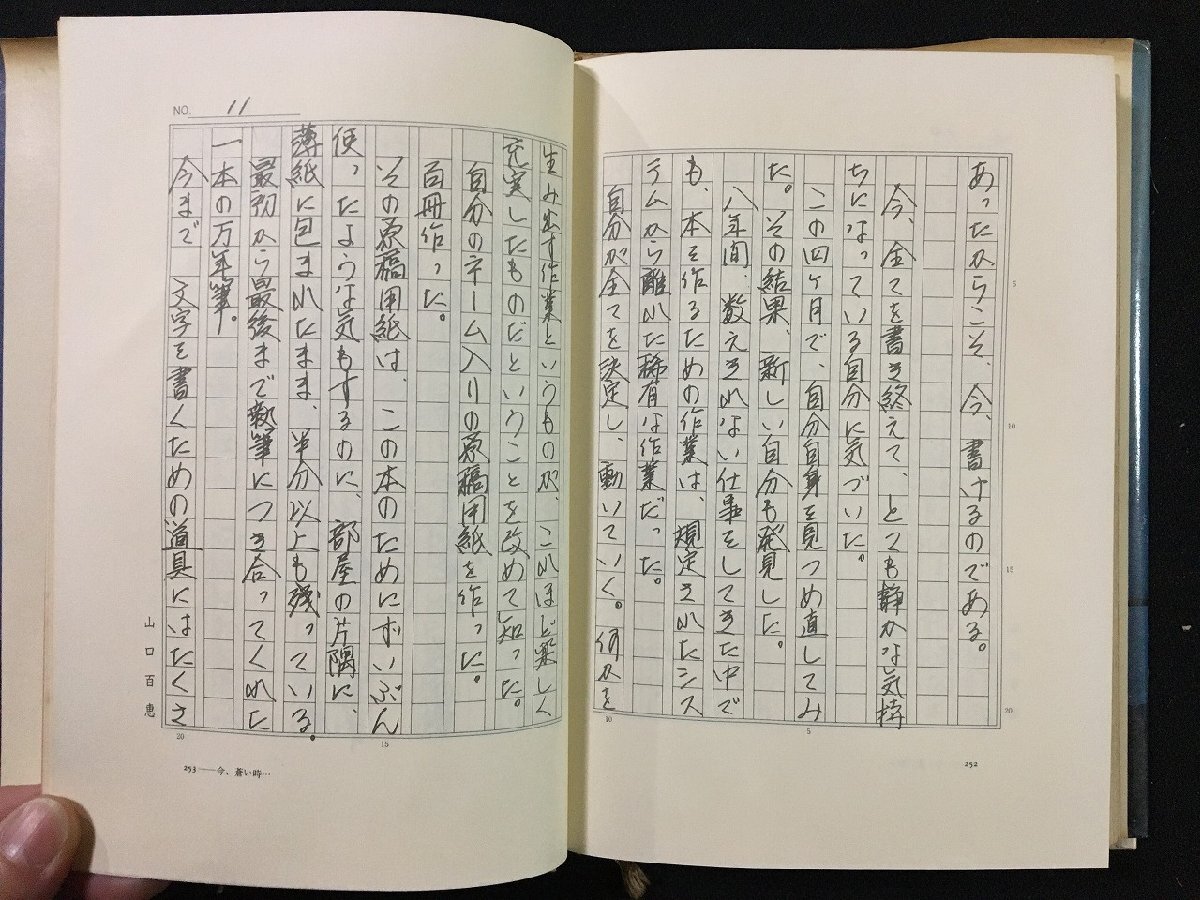 あったからこそ、今、書けるのである。
今、全てを書き終えて、とても静かな気持
ちになっている自分に気づいた。
この四ヶ月で、自分自身を見つめ直してみ
た。その結果、新しい自分も発見した。
八年間、数えきれない仕事をしてきた中で
も、本を作るための作業は、規定されたシス
テムから離れた稀有な作業だった。
自分が全てを決定し、動いていく。何かを
5
10
15
20
5
10
252
NO. 11
生み出す作業というものが、これほど楽しく
充実したものだということを改めて知った。
自分のネーム入りの原稿用紙を作った。
百冊作った。
その原稿用紙は、この本のためにずいぶん
使ったような気もするのに、部屋の片隅に、
薄紙に包まれたまま、半分以上も残っている。
最初から最後まで執筆につき合ってくれた
一本の万年筆。
今まで 文字を書くための道具にはたくさ
15
20
山口百惠
253──今、蒼い時…